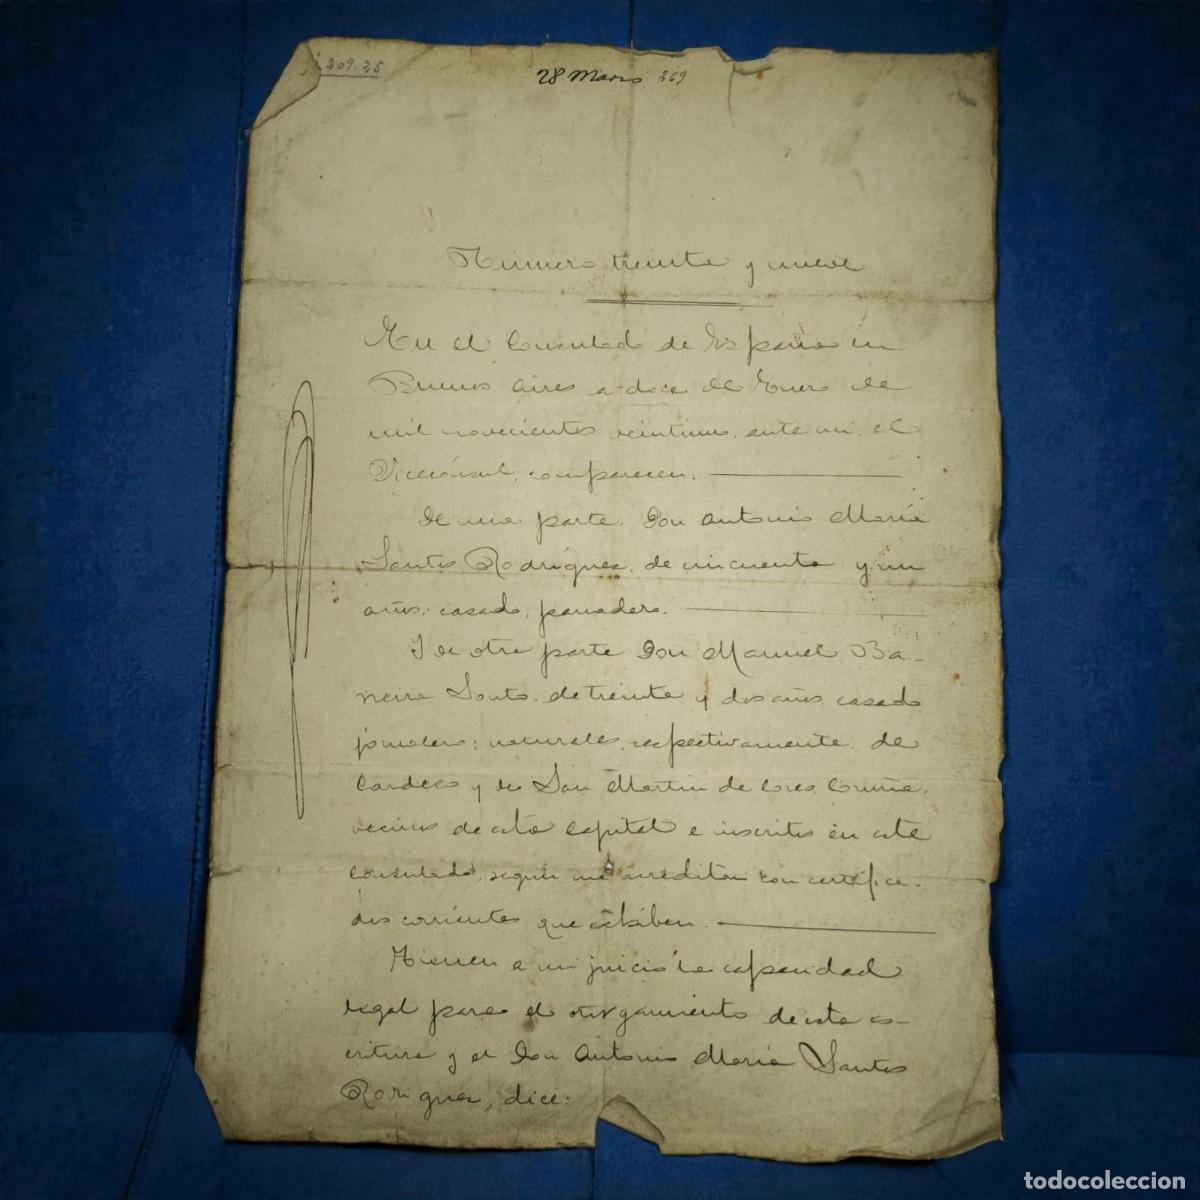 209.25
28 Marzo 269
Número treinta y nueve
En el Consulado de España en
Buenos Aires a doce de Enero de
mil novecientos veintiuno, ante mi, el
Vicecónsul, comparecen.
De una parte, Don Antonio María
Santos Rodríguez, de cincuenta y un
años, casado, panadero.
Y de otra parte Don Manuel Ba-
Souto, de treinta y dos años, casado
jornalero; naturales, respectivamente, de
y de San Martin de Ores, Coruña,
vecinos de esta capital e inscritos en este
consulado, según me acreditan con certifica-
dos corrientes que exhiben.
Tienen a mi juicio la capacidad
legal para el otorgamiento de esta es-
critura y el Don Antonio María Santos
Rodriguez, dice:
todocoleccion